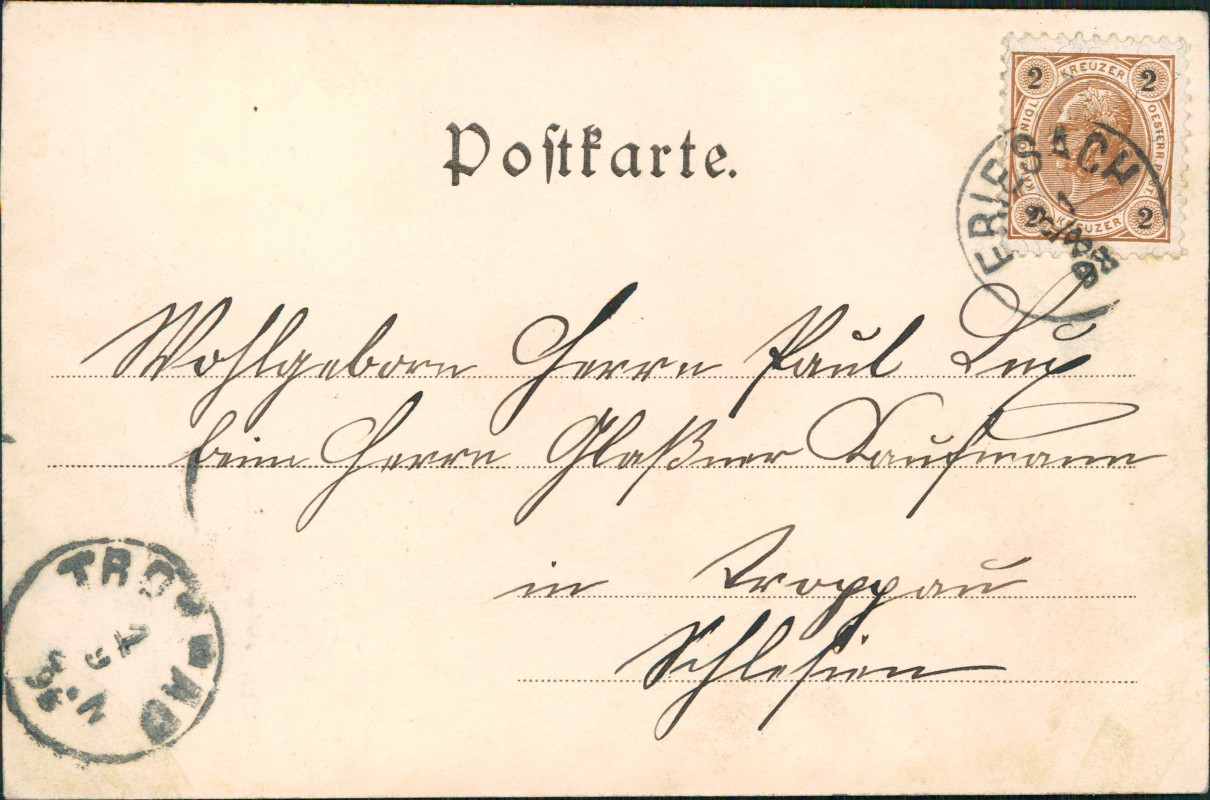 Postkarte.
2 KREUZER 2
KAIS. KÖNIGL. OESTERR. POST.
2 KREUZER 2
FRIESACH
Wohlgeborn Herrn Paul Lux
beim Herrn Glaßner Kaufmann
in Troppau
Schlesien
TROPPAU